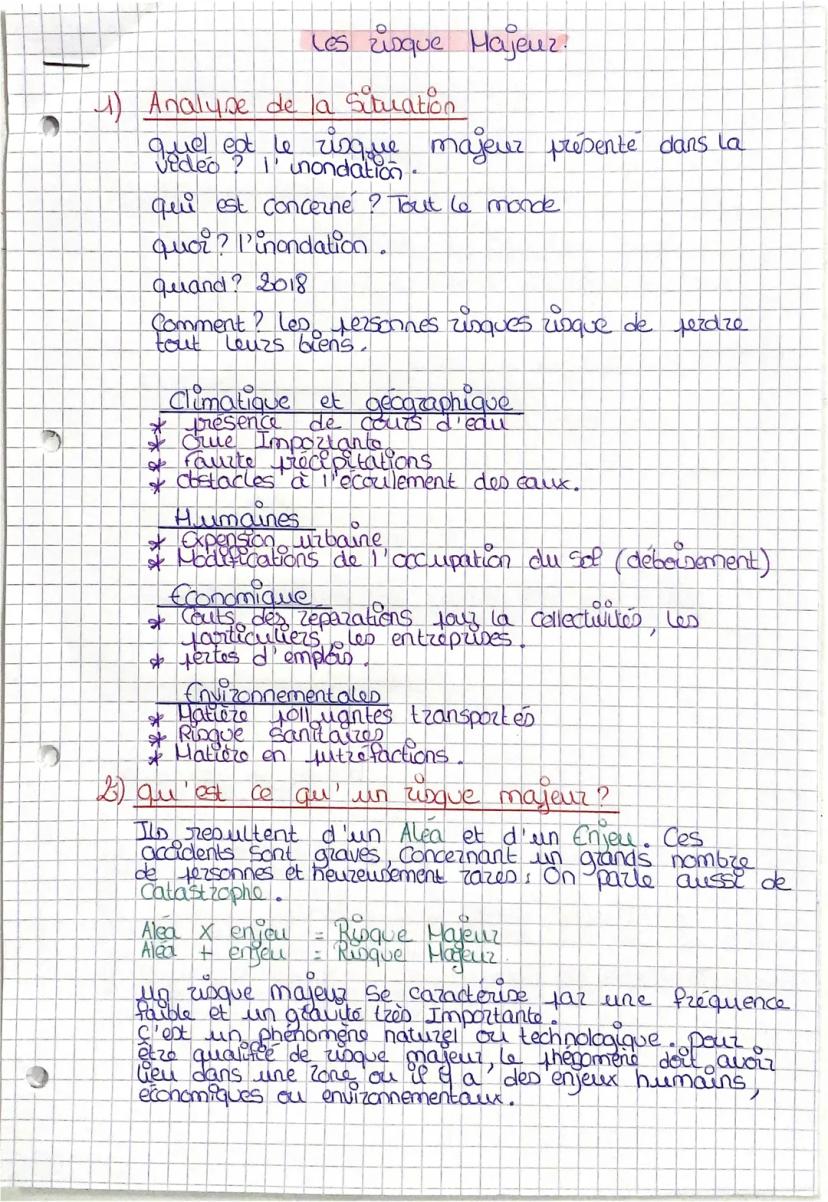 Les risque Majeur.
1) Analyse de la situation
quel est le risque majeur présenté dans la
vidéo ? l'inondation.
qui est concerné ? Tout le monde
quoi? l'inondation.
quand? 2018
Comment? Les personnes risques risque de perdre
tout leurs biens.
Climatique et géographique
* présence de cours d'eau
* Crue Importante
* Faurte précipitations
* obstacles à l'écoulement des eaux.
Humaines
* Expension urbaine
* Modifications de l'occupation du sol (déboisement)
Économique
* Couts des reparations pour la collectivités, les
particuliers, les entreprises.
* pertes d'emplois.
Environnementales
* Matière polluantes transportés
* Risque sanitaires
* Matière en putréfactions.
2) qu'est ce qu'un risque majeur?
Ils resultent d'un Aléa et d'un Enjeu. Ces
accidents sont graves, concernant un grands nombre
de personnes et heureusement rares: On parle aussi de
catastrophe.
Aléa x enjeu = Risque Majeur
Aléa + enjeu = Risque Majeur.
Un risque majeur se caractérise par une fréquence
faible et un gravité très Importante.
C'est un phénomène naturel ou technologique. pour
être qualifié de risque majeur, le phénomène doit avoir
lieu dans une zone ou il y a des enjeux humains,
économiques ou environnementaux.